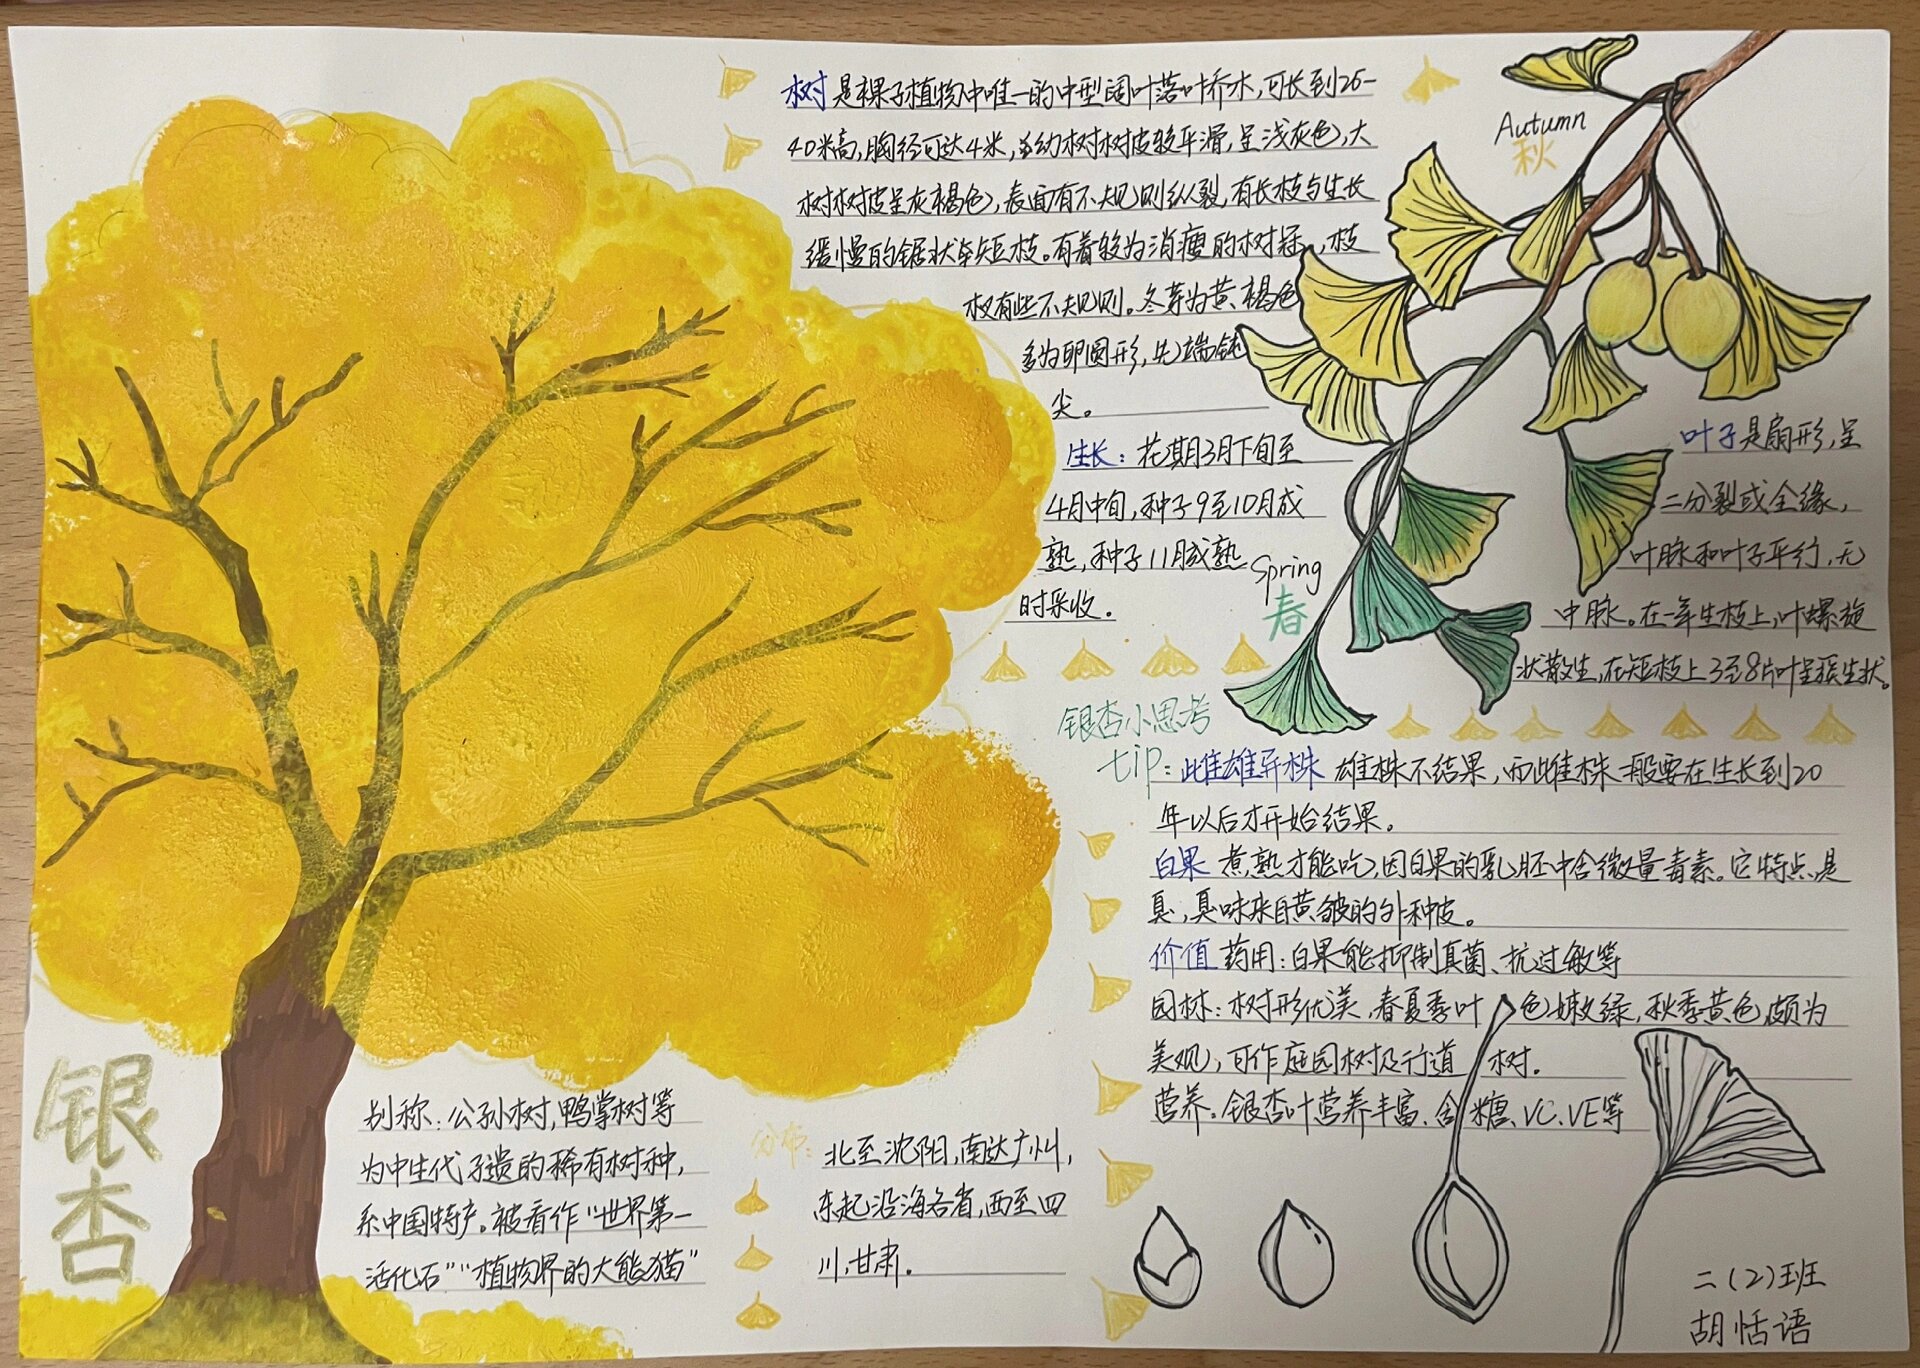 树 是裸子植物中唯一的中型阔叶落叶乔木,可长到25-
40米高,胸径可达4米,幼树树皮较平滑,呈浅灰色,大
树树皮呈灰褐色,表面有不规则纵裂,有长枝与生长
缓慢的锯状短枝。有着较为消瘦的树冠,枝
杈有些不规则。冬芽为黄褐色
多为卵圆形,先端钝
尖。
生长:花期3月下旬至
4月中旬,种子9至10月成
熟,种子11月成熟
时采收.
Autumn
秋
Spring
春
叶子是扇形,呈
二分裂或全缘,
叶脉和叶子平行,无
中脉。在一年生枝上,叶螺旋
状散生,在短枝上3至8片叶呈簇生状。
银杏小思考
tip:雌雄异株 雄株不结果,而雌株一般要在生长到20
年以后才开始结果。
白果 煮熟才能吃,因白果的乳胚中含微量毒素。它特点是
臭,臭味来自黄皱的外种皮。
价值 药用:白果能抑制真菌、抗过敏等
园林:树形优美,春夏季叶色嫩绿,秋季黄色,颇为
美观,可作庭园树及行道树.
营养。银杏叶营养丰富、含糖、VC、VE等
银杏
别称:公孙树,鸭掌树等
为中生代孑遗的稀有树种,
系中国特产。被看作"世界第一
活化石""植物界的大熊猫"
分布:北至沈阳,南达广州,
东起沿海各省,西至四
川,甘肃.
二(2)班
胡恬语